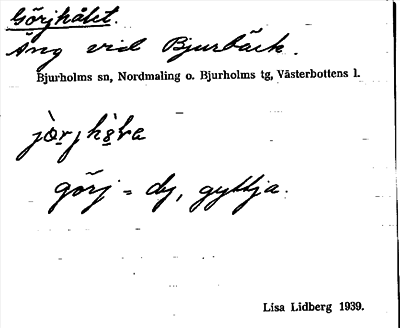 Görjhålet.
Äng vid Bjurbäck.
Bjurholms sn, Nordmaling o. Bjurholms tg, Västerbottens l.
görj = dy, gyttja.
Lisa Lidberg 1939.